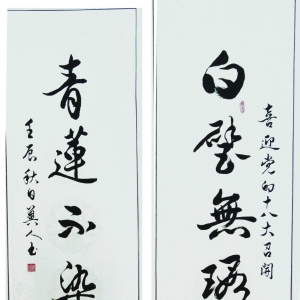 喜迎党的十八大召开
白璧無瑕
青蓮不染
壬辰秋日冀人书